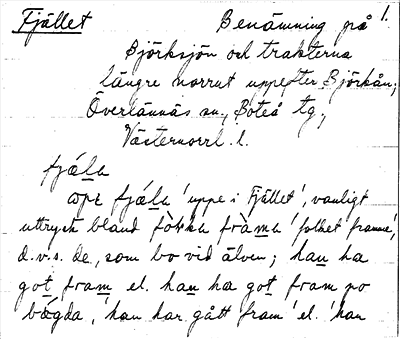 Fjället Benämning på 1.
Björksjön och trakterna
längre norrut uppefter Björkån,
Överlännäs sn., Boteå tg.,
Västernorrl. l.
fjáļa
ɷpɛ fjáļa 'uppe i Fjället', vanligt
uttryck bland fòkka fràma 'folket framme',
d.v.s. de, som bo vid älven; han ha
got fram el. han ha got fram po
bǿgda, 'han har gått fram' el. 'han